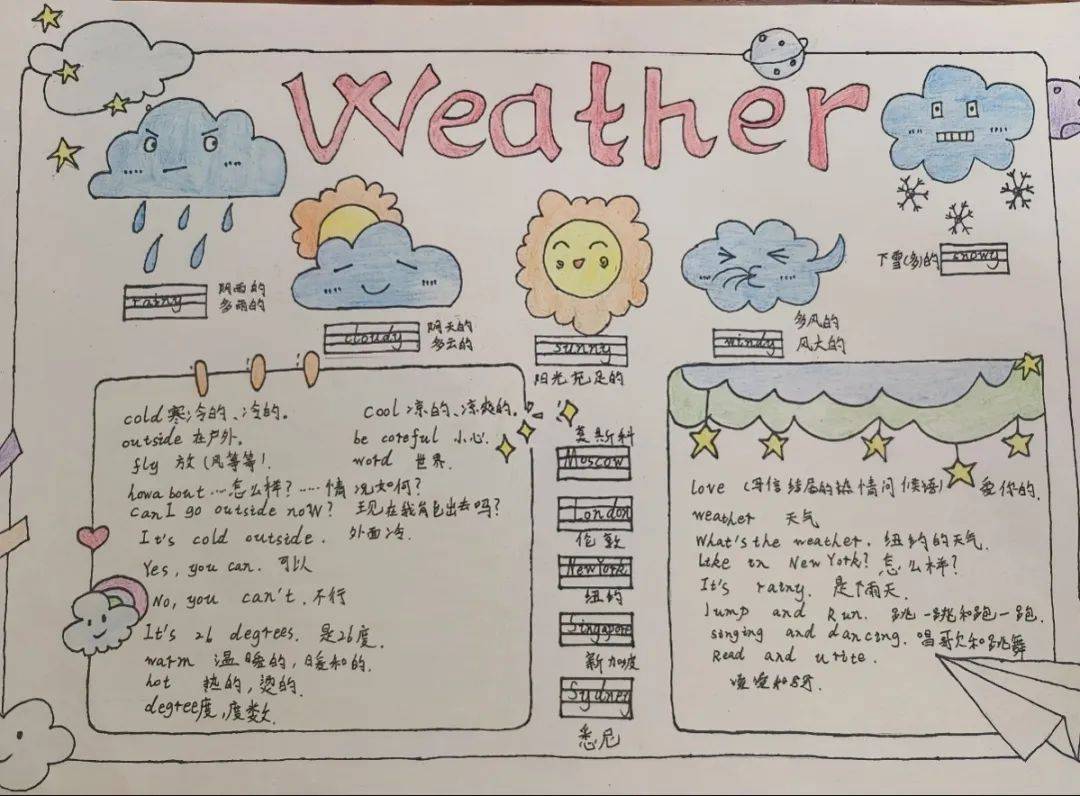 Weather
rainy 阴雨的
多雨的
cloudy 阴天的
多云的
sunny
阳光充足的
windy 多风的
风大的
下雪(多)的 snowy
cold 寒冷的、冷的。 cool 凉的、凉爽的。
outside 在户外。 be coreful 小心.
fly 放(风等等). word 世界.
howa bout ....怎么样? ......情况如何?
can I go outside now? 现在我能出去吗?
It's cold outside. 外面冷.
Yes, you can. 可以
No, you can't. 不行
It's 26 degrees. 是26度.
warm 温暖的, 暖和的.
hot 热的, 烫的.
degree度, 度数.
莫斯科
Moscow
London
伦敦
New York
纽约
Singapore
新加坡
Sydney
悉尼
Love (写信结尾的热情问候语) 爱你的.
weather 天气
What's the weather. 纽约的天气.
Like in New York? 怎么样?
It's rainy. 是个雨天.
Jump and Run. 跳一跳和跑一跑.
singing and dancing. 唱歌和跳舞
Read and write.
读和写.